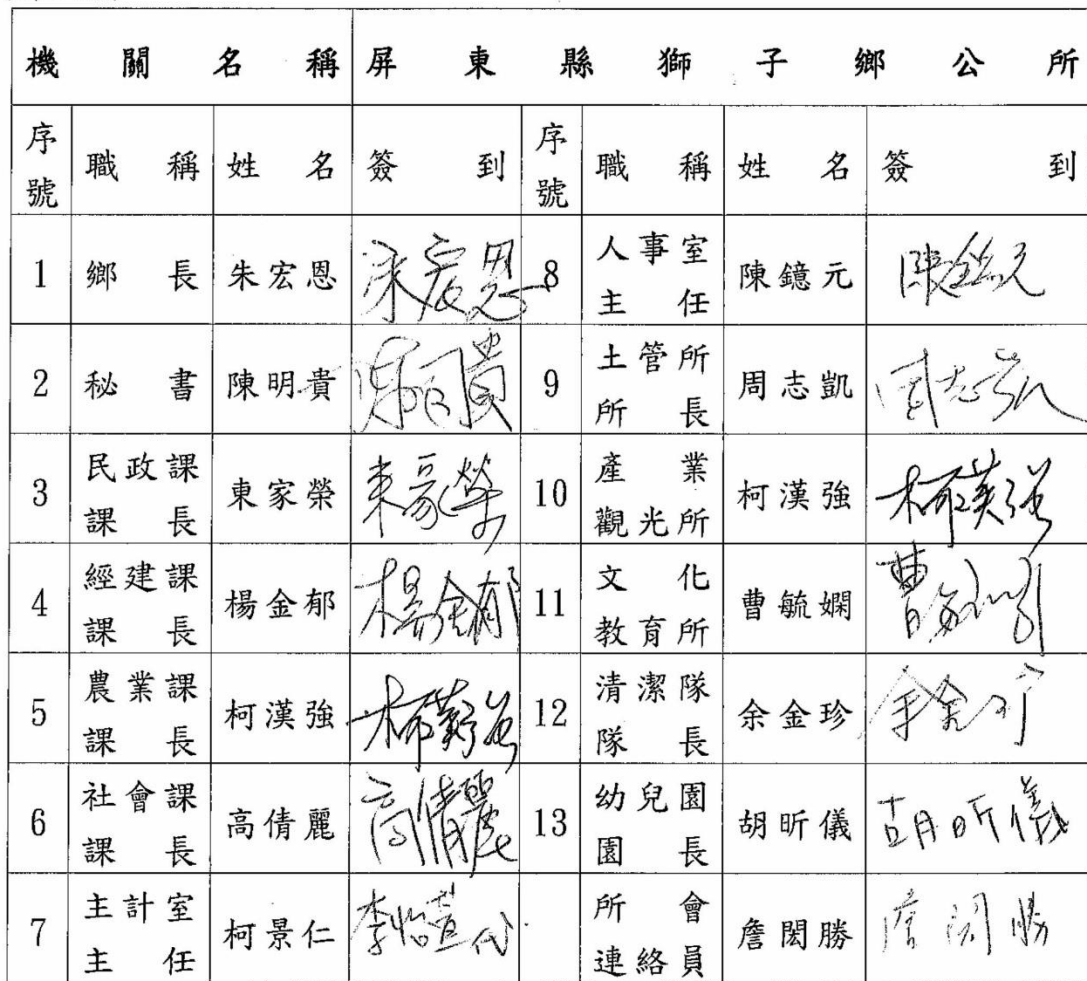 機關名稱 屏東縣獅子鄉公所
序號 職稱 姓名 簽到 序號 職稱 姓名 簽到
1 鄉長 朱宏恩 朱宏恩 8 人事室主任 陳鐿元 陳鐿元
2 秘書 陳明貴 陳明貴 9 土管所所長 周志凱 周志凱
3 民政課課長 東家榮 東家榮 10 產業觀光所 柯漢強 柯漢強
4 經建課課長 楊金郁 楊金郁 11 文化教育所 曹毓嫻
5 農業課課長 柯漢強 柯漢強 12 清潔隊隊長 余金珍 余金珍
6 社會課課長 高倩麗 高倩麗 13 幼兒園園長 胡昕儀 胡昕儀
7 主計室主任 柯景仁 李怡萱代 所會連絡員 詹閎勝 詹閎勝